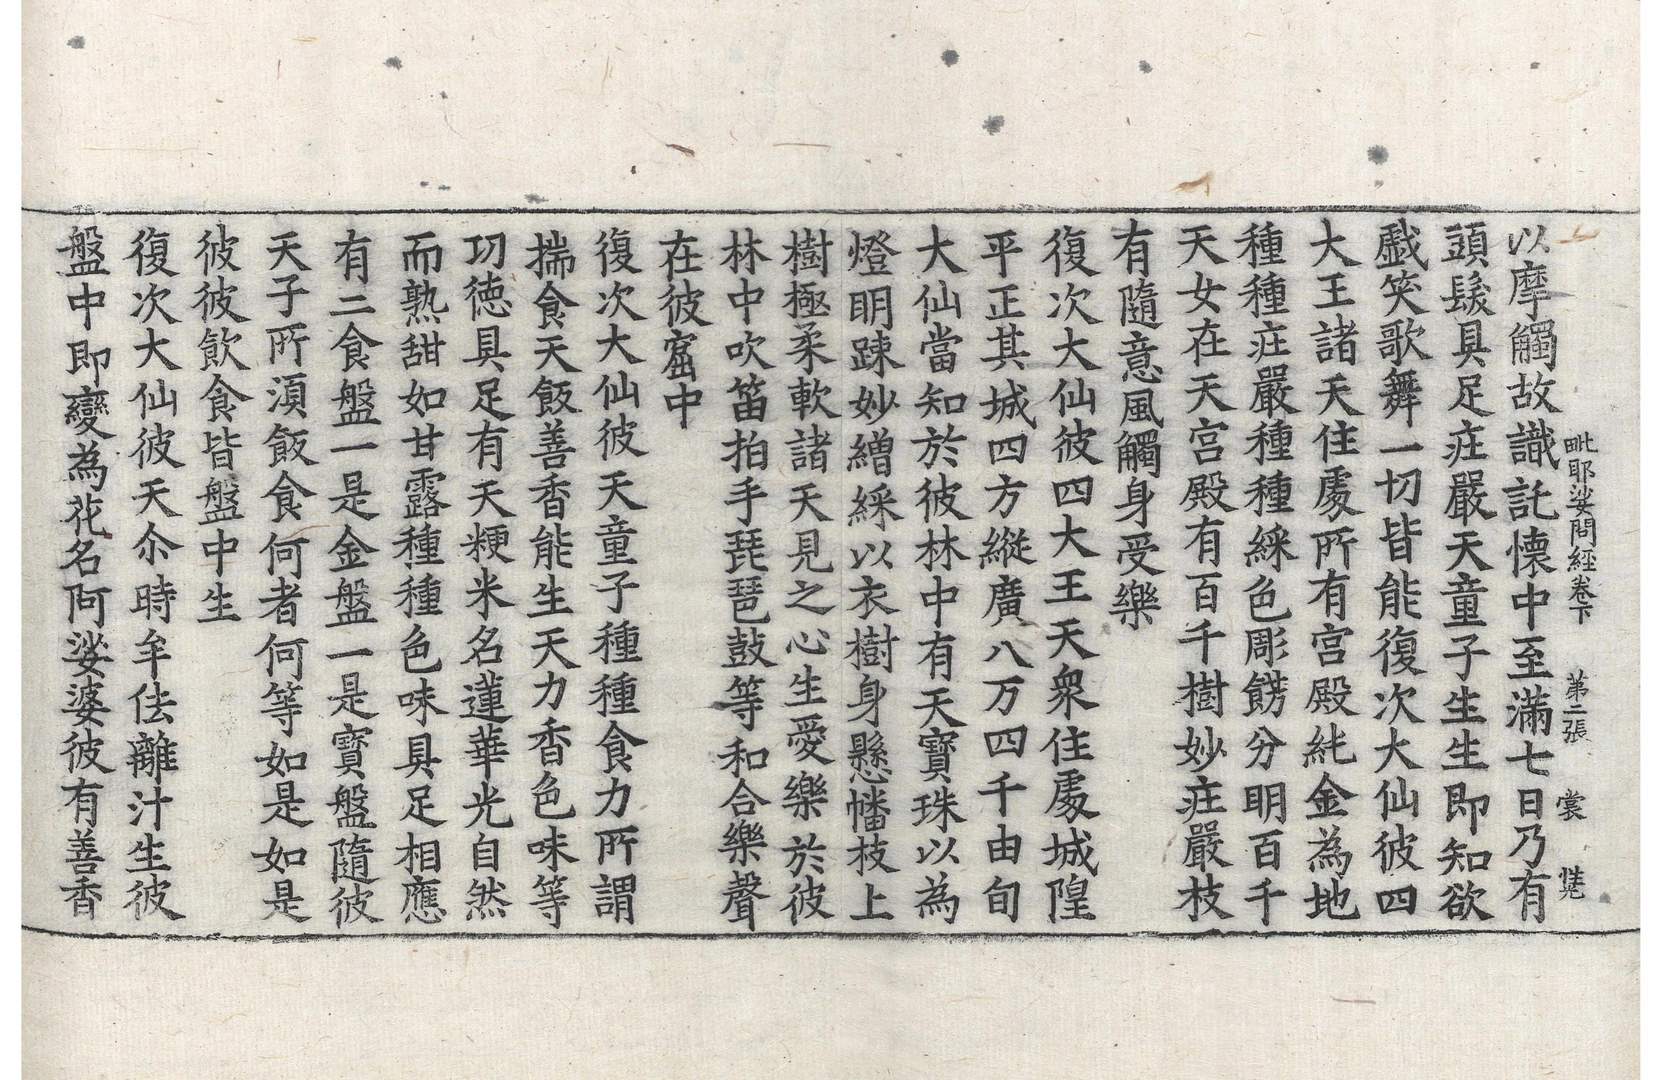 毗耶娑問經卷下　第二張　裳
以摩觸故識託懷中至滿七日乃有
頭髮具足庄嚴天童子生生即知欲
戱笑歌舞一切皆能復次大仙彼四
大王諸天住處所有宮殿純金為地
種種庄嚴種種綵色彫餝分明百千
天女在天宮殿有百千樹妙庄嚴枝
有隨意風觸身受樂
復次大仙彼四大王天衆住處城隍
平正其城四方縱廣八万四千由旬
大仙當知於彼林中有天寶珠以為
燈明踈妙繒綵以衣樹身懸幡枝上
樹極柔軟諸天見之心生愛樂於彼
林中吹笛拍手琵琶鼓等和合樂聲
在彼窟中
復次大仙彼天童子種種食力所謂
揣食天飯善香能生天力香色味等
功徳具足有天粳米名蓮華光自然
而熟甜如甘露種種色味具足相應
有二食盤一是金盤一是寶盤隨彼
天子所須飯食何者何等如是如是
彼彼飲食皆盤中生
復次大仙彼天尒時牟佉離汁生彼
盤中即變為花名阿娑婆彼有善香